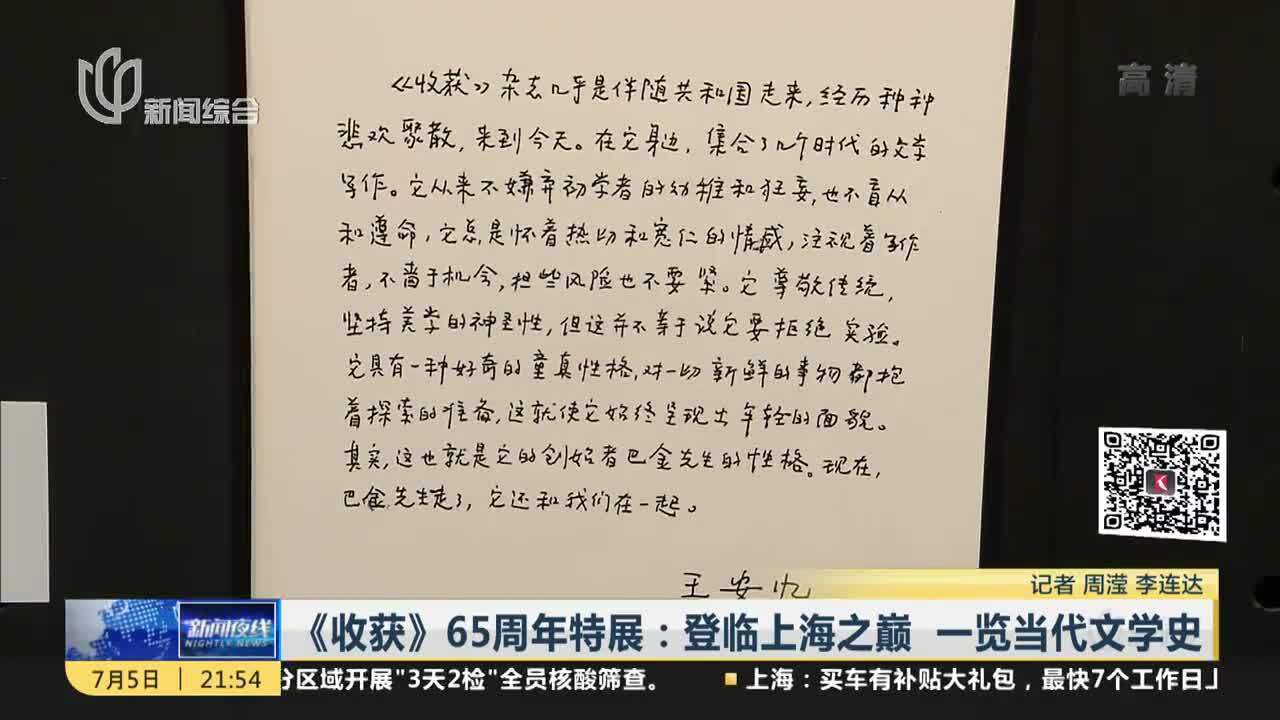 新闻综合
高清
《收获》杂志几乎是伴随共和国走来，经历种种
悲欢聚散，来到今天。在它身边，集合了几个时代的文学
写作。它从来不嫌弃初学者的幼稚和狂妄，也不盲从
和遵命，它总是怀着热切和宽仁的情感，注视着写作
者，不啬于机会，担些风险也不要紧。它尊敬传统，
坚持美学的神圣性，但这并不等于说它要拒绝实验。
它具有一种好奇的童真性格，对一切新鲜的事物都抱
着探索的准备，这就使它始终呈现出年轻的面貌。
其实，这也就是它的创始者巴金先生的性格。现在，
巴金先生走了，它还和我们在一起。
王安忆
记者 周滢 李连达
新闻夜线
NIGHTLY NEWS
《收获》65周年特展：登临上海之巅 一览当代文学史
7月5日 21:54
分区域开展"3天2检"全员核酸筛查。 上海：买车有补贴大礼包，最快7个工作日